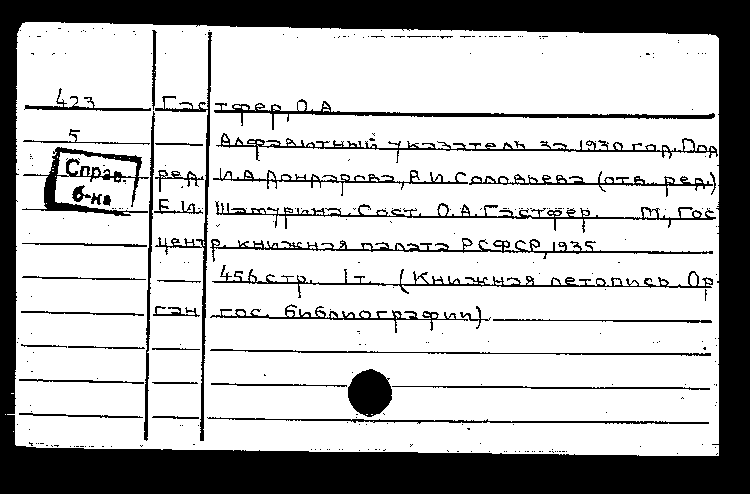 423 Гастфер, О.А.
5 Алфавитный указатель за 1930 год. Под
Справ. ред. И.А. Дондарова, В.И. Соловьева (отв. ред.)
б-ка Е.И. Шамурина. Сост. О.А. Гастфер. М., Гос
центр. книжная палата РСФСР, 1935
456 стр. 1 т. (Книжная летопись. Ор
ган гос. библиографии)